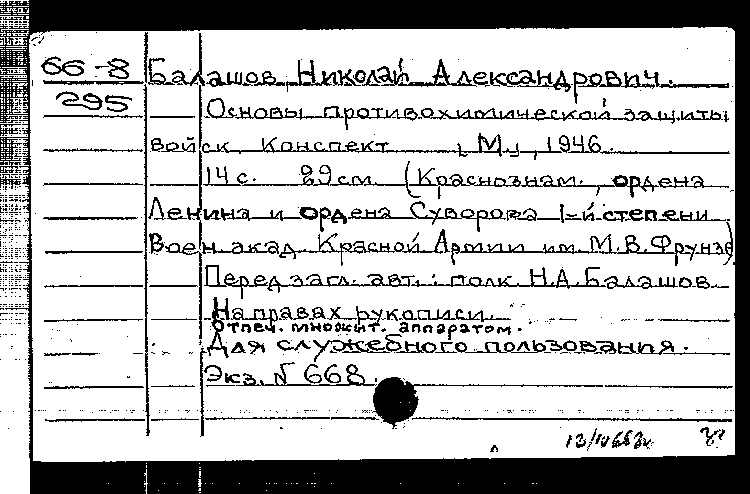 66-8 Балашов, Николай Александрович.
295 Основы противохимической защиты
войск. Конспект. [М.], 1946.
14 с. 29 см. (Краснознам., ордена
Ленина и ордена Суворова 1-й степени
Воен. акад. Красной Армии им. М.В.Фрунзе)
Перед загл. авт.: полк. Н.А.Балашов
На правах рукописи.
Отпеч. множит. аппаратом.
Для служебного пользования.
Экз. № 668.